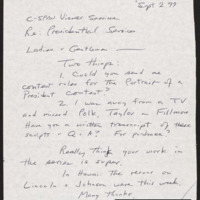 Sept 2 99
C-SPAN Viewer Services
Re: Presidential Series
Ladies & Gentlemen
Two things:
1. Could you send me
contest rules for the Portrait of a
President Contest?
2. I was away from a TV
and missed Polk, Taylor & Fillmore
Have you a written transcript of these
scripts & Q & A? For purchase?
Really think your work in
the series is super.
In Hawaii the reruns on
Lincoln & Johnson were this week.
Many thanks